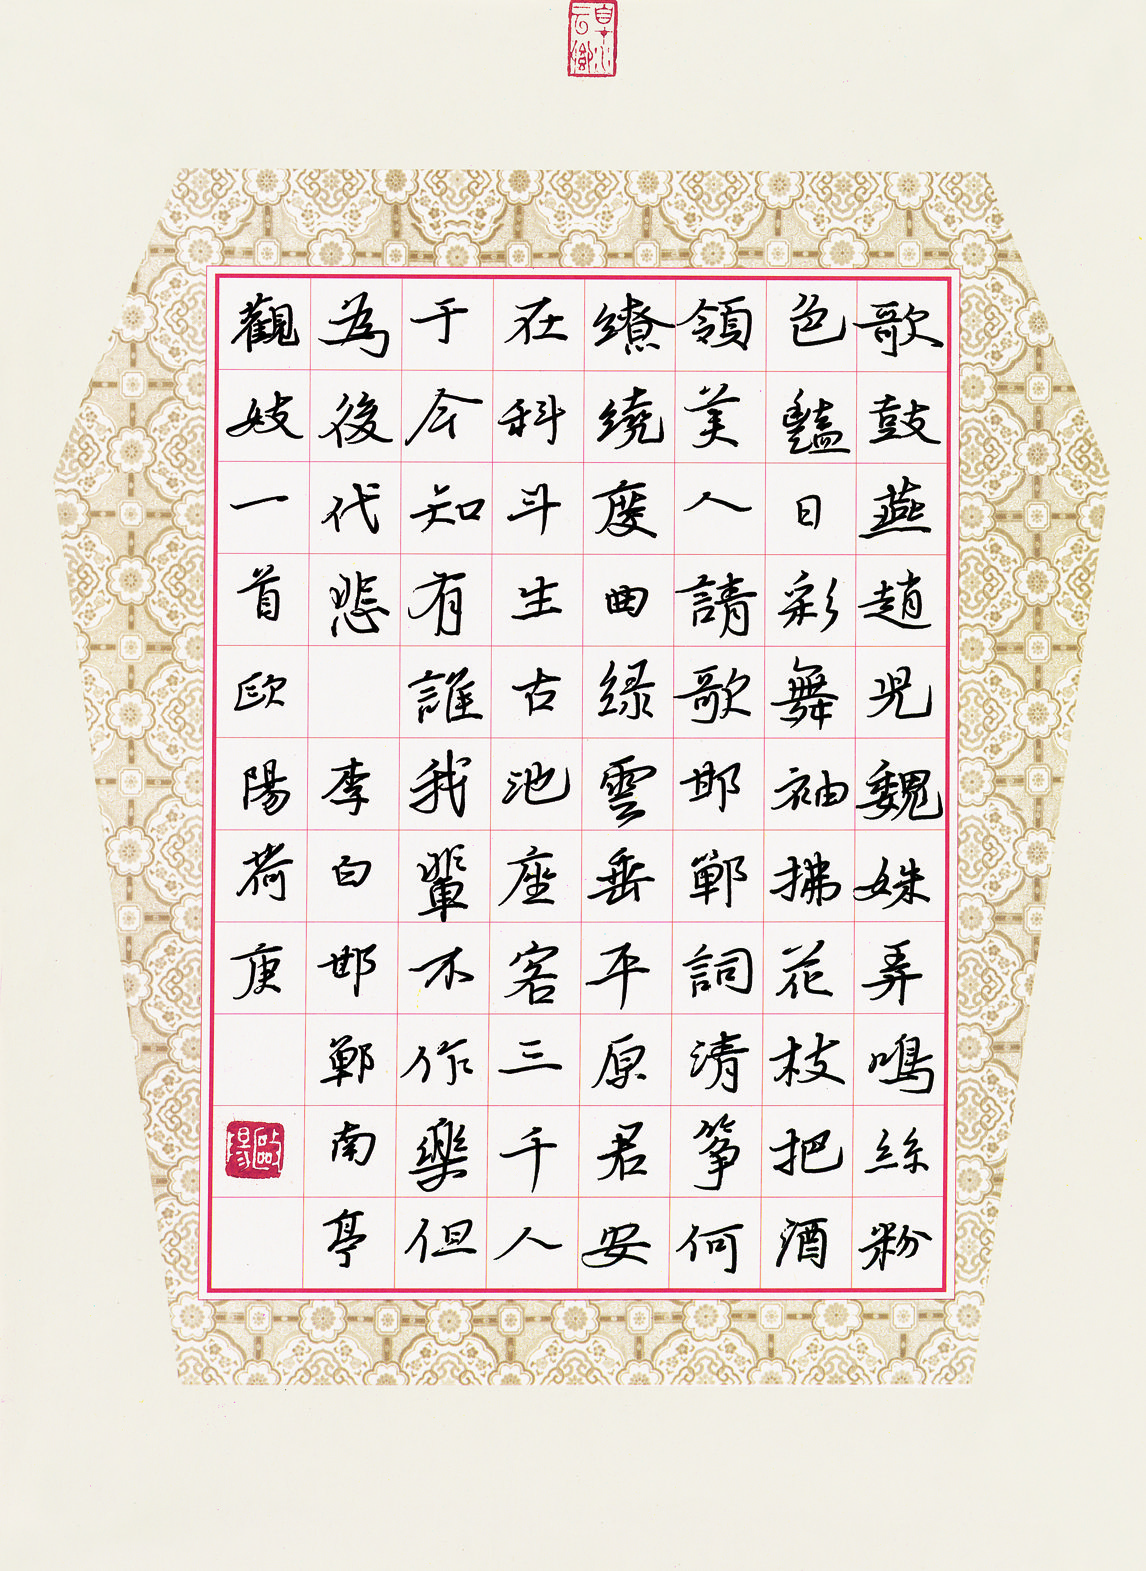 歌鼓燕趙兒魏姝弄鳴絲粉
色豔日彩舞袖拂花枝把酒
領美人請歌邯鄲詞清箏何
繚繞度曲緑雲垂平原君安
在科斗生古池座客三千人
于今知有誰我輩不作樂但
為後代悲 李白邯鄲南亭
觀妓一首歐陽荷庚
歐陽